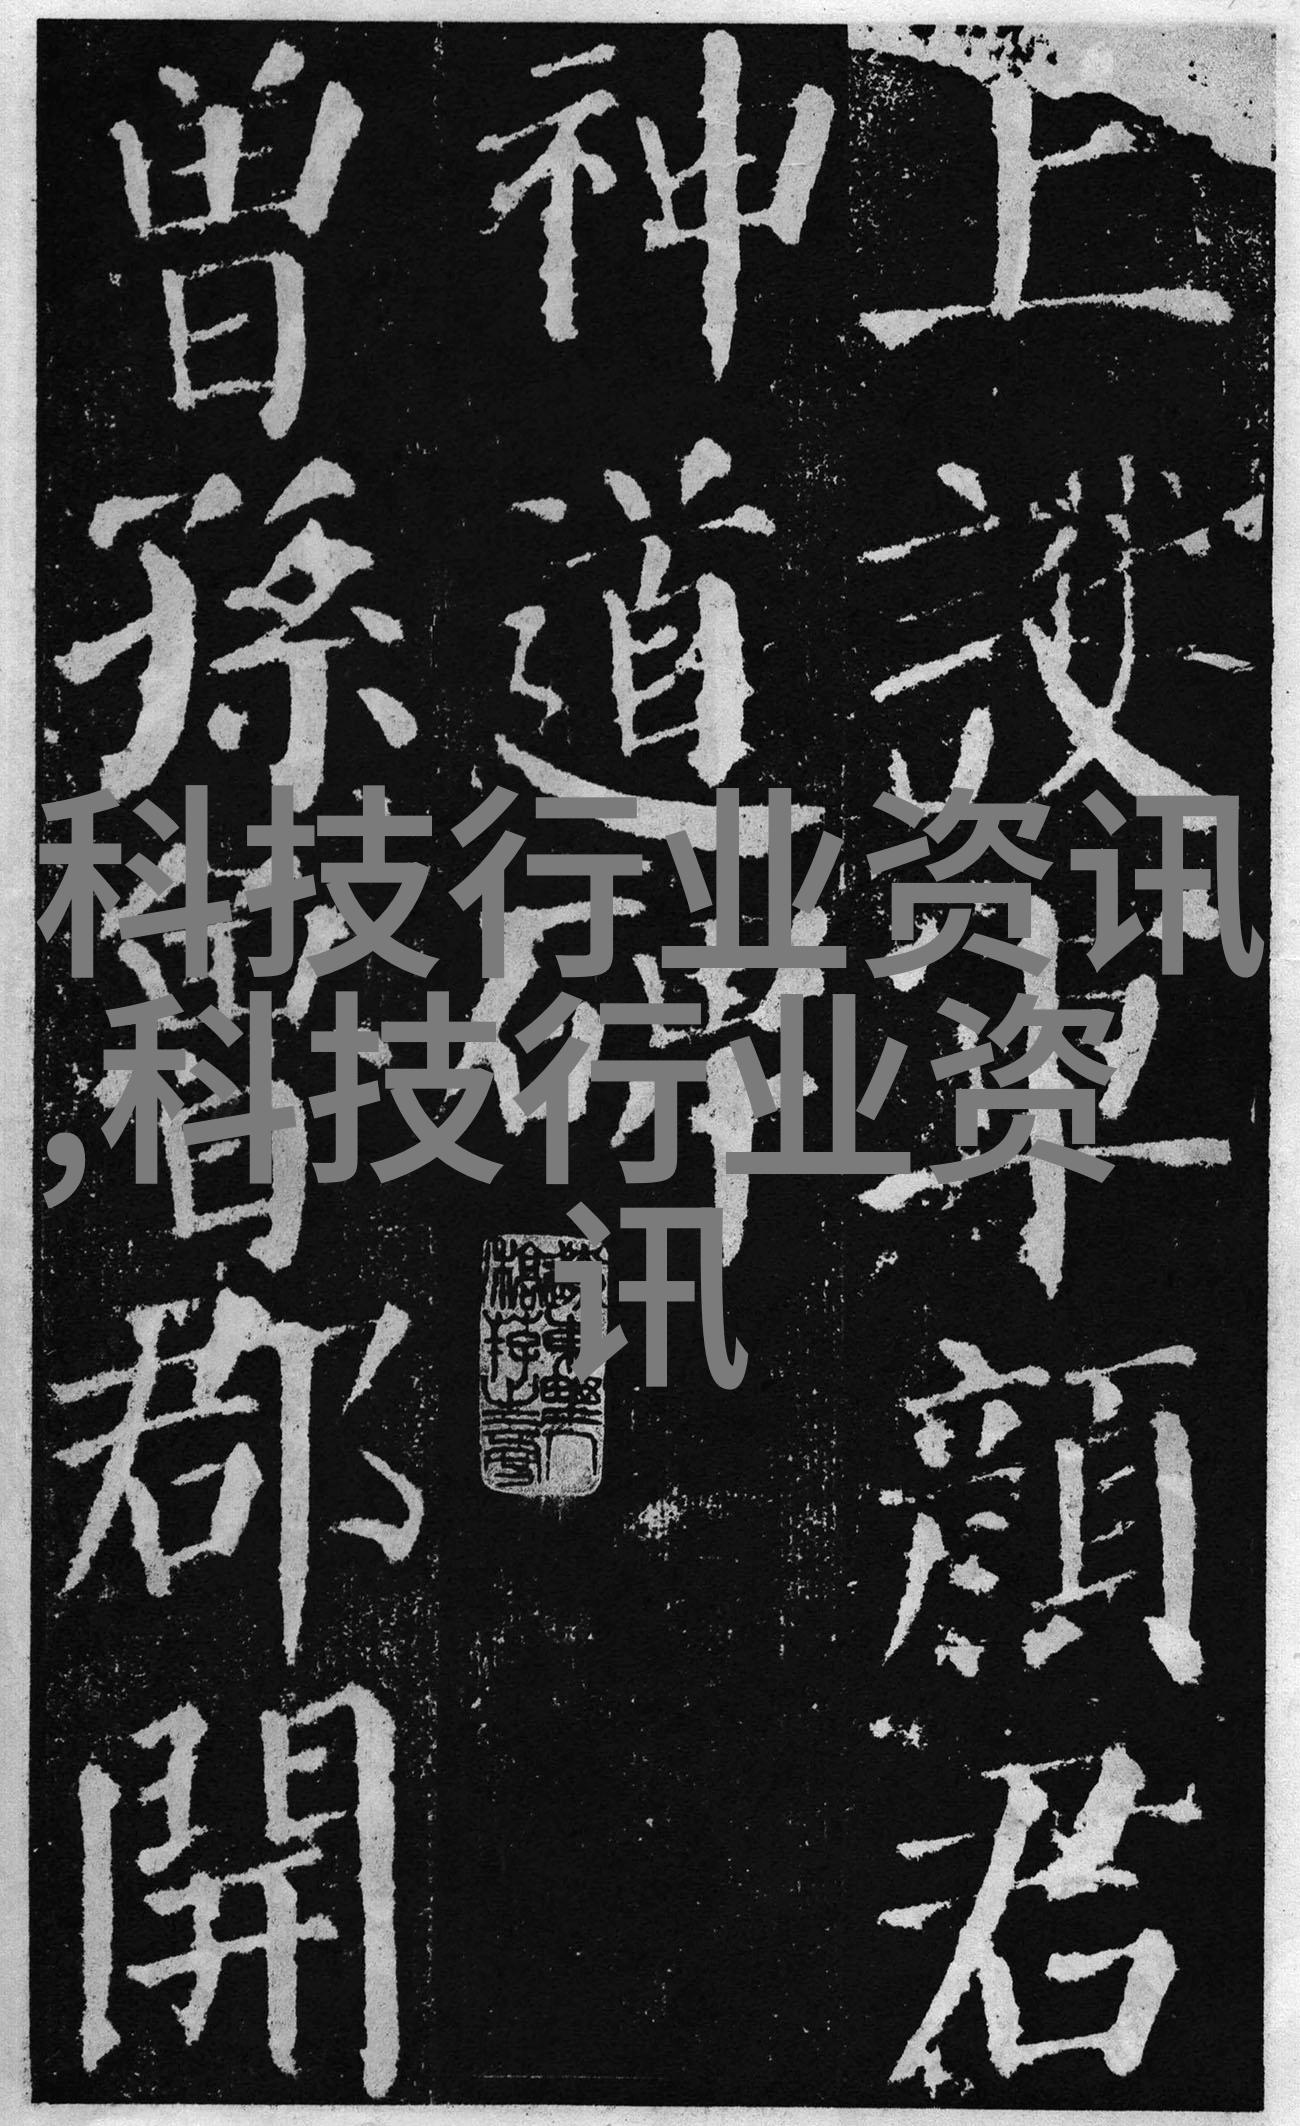 上護軍顏君
神道碑
曾孫魯郡開
科技行业资讯
,科技行业资
讯